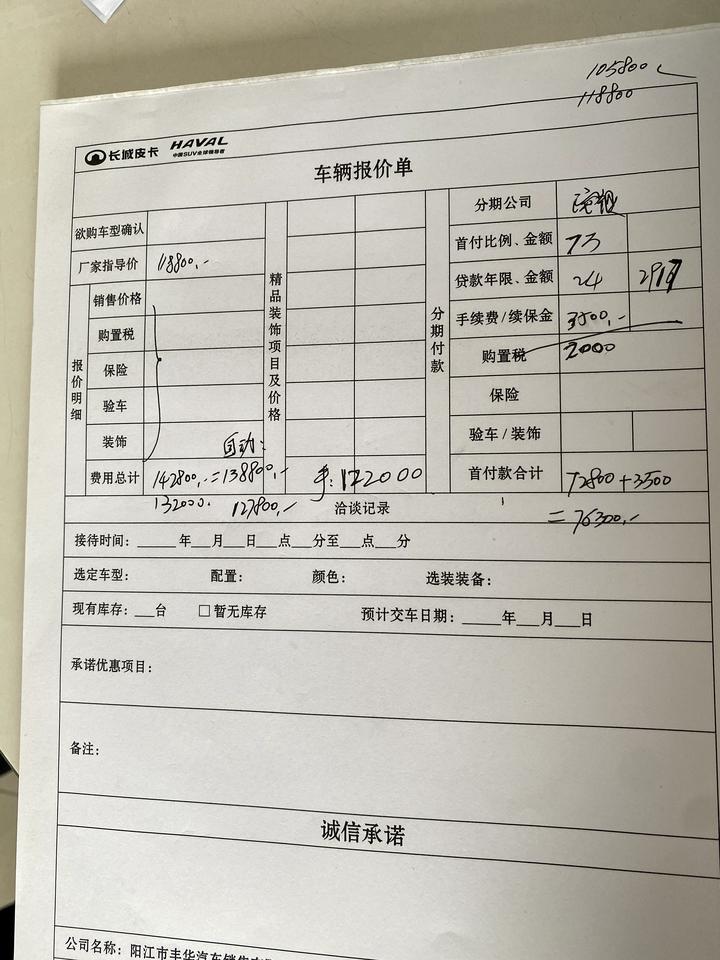 105800
118800
长城皮卡 HAVAL
中国SUV全球领导者
车辆报价单
欲购车型确认
厂家指导价 118800.-
报价明细
销售价格
购置税
保险
验车
装饰
费用总计
自动:
142800.-=138800.-
132000. 127800.-
精品装饰项目及价格
手:122000
分期付款
分期公司
首付比例、金额 73
贷款年限、金额 24 2917
手续费/续保金 3500.-
购置税 2000
保险
验车/装饰
首付款合计 72800+3500
=76300.-
洽谈记录
接待时间:______年___月___日___点___分至___点___分
选定车型: 配置: 颜色: 选装装备:
现有库存:___台 □暂无库存 预计交车日期:______年___月___日
承诺优惠项目:
备注:
诚信承诺
公司名称:阳江市丰华汽车销售